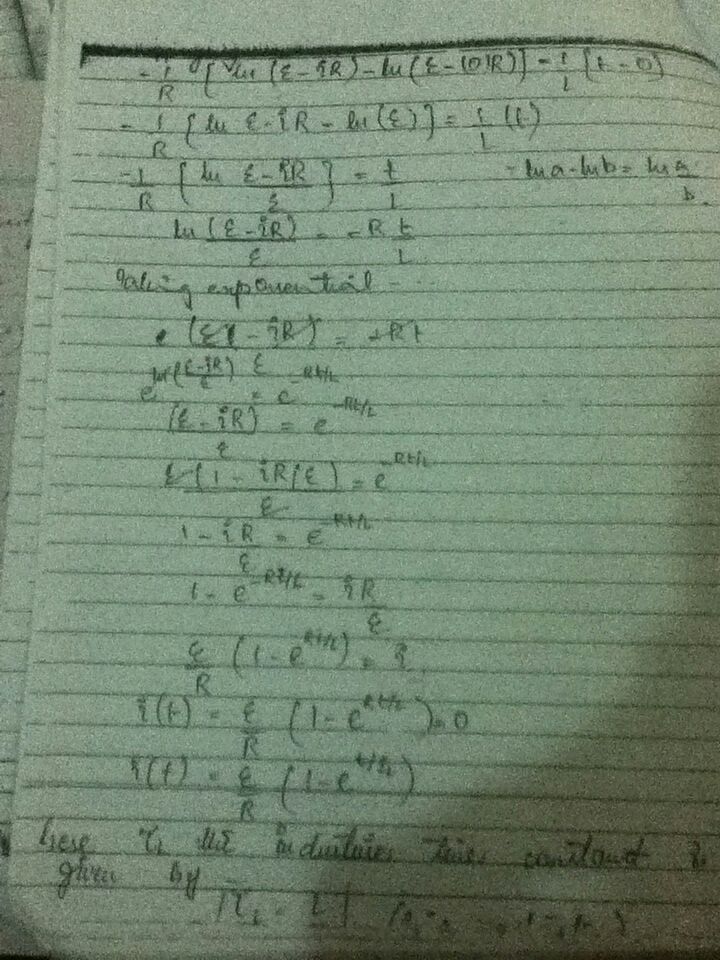 - 1/R [ln (ε - iR) - ln (ε - (0)R)] = 1/L [t - 0]
- 1/R [ln ε - iR - ln (ε)] = 1/L (t)
- 1/R [ln ε - iR / ε] = t/L - ln a - ln b = ln a/b.
ln (ε - iR)/ε = -R t/L
Taking exponential -
(ε - iR)/ε = -Rt
e^ln((ε-iR)/ε) = e^-Rt/L
(ε - iR)/ε = e^-Rt/L
ε(1 - iR/ε)/ε = e^-Rt/L
1 - iR/ε = e^-Rt/L
1 - e^-Rt/L = iR/ε
ε/R (1 - e^Rt/L) = i
i(t) = ε/R (1 - e^Rt/L) = 0
i(t) = ε/R (1 - e^t/τL)
here τL the inductive time constant is
given by
τL = L